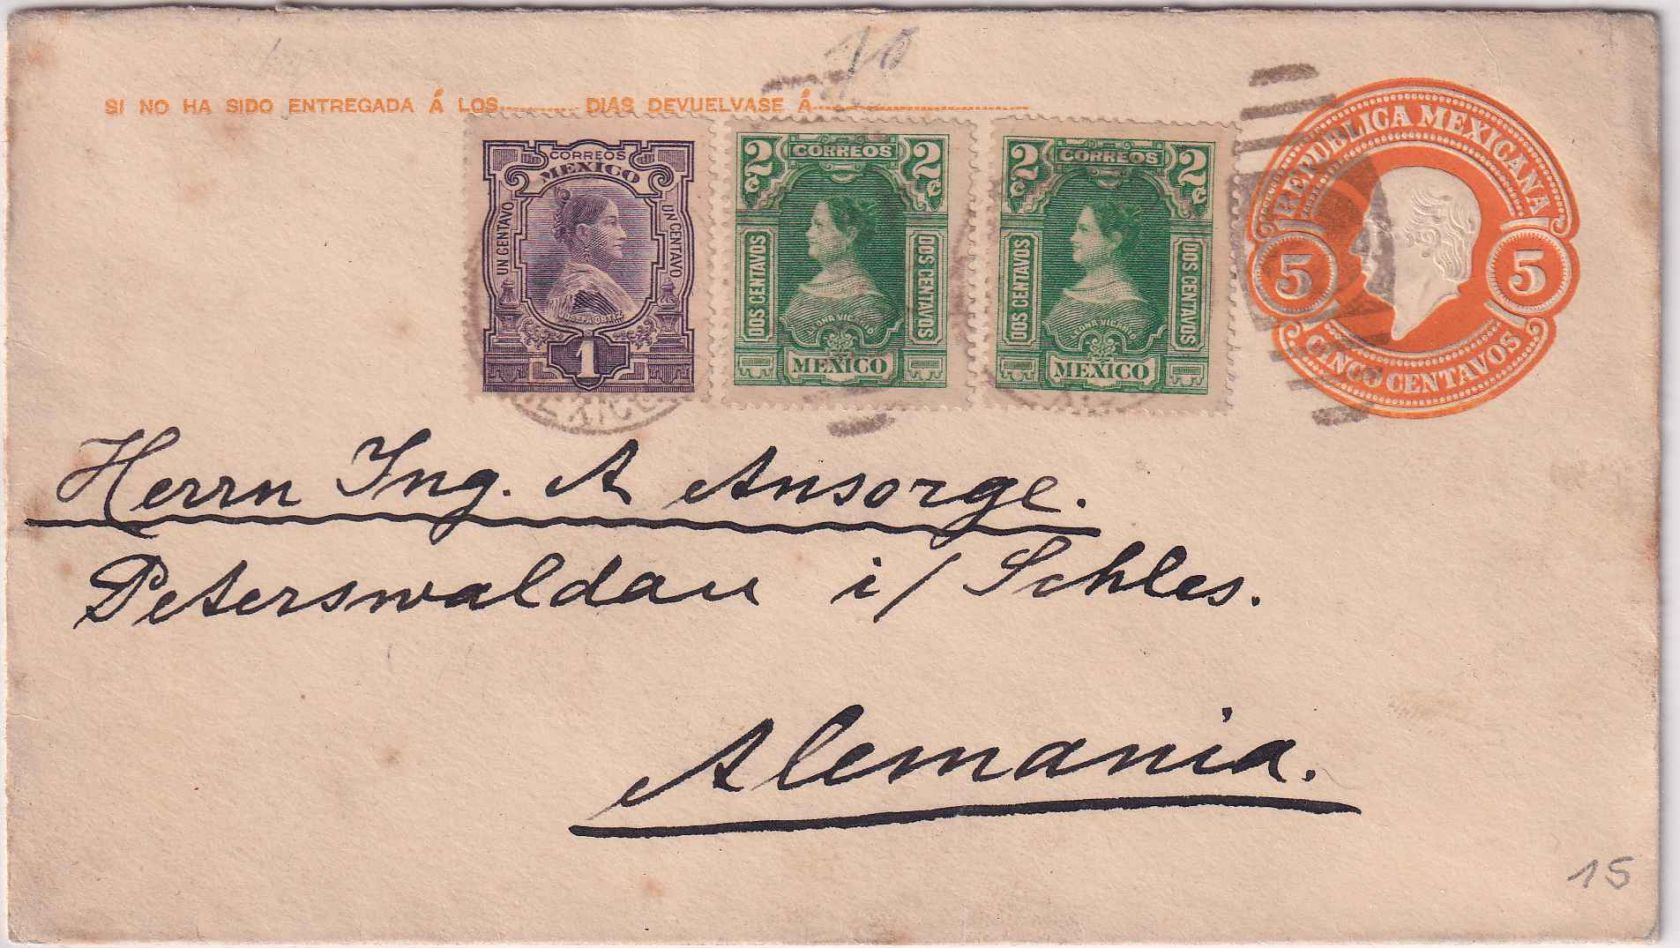 10
SI NO HA SIDO ENTREGADA Á LOS......... DIAS DEVUELVASE Á
CORREOS
MEXICO
UN CENTAVO
UN CENTAVO
1
2¢ CORREOS 2¢
DOS CENTAVOS
DOS CENTAVOS
LEONA VICARIO
MEXICO
2¢ CORREOS 2¢
DOS CENTAVOS
DOS CENTAVOS
LEONA VICARIO
MEXICO
REPUBLICA MEXICANA
5 5
CINCO CENTAVOS
Herrn Ing. A Ansorge.
Peterswaldau i/ Schles.
Alemania.
15